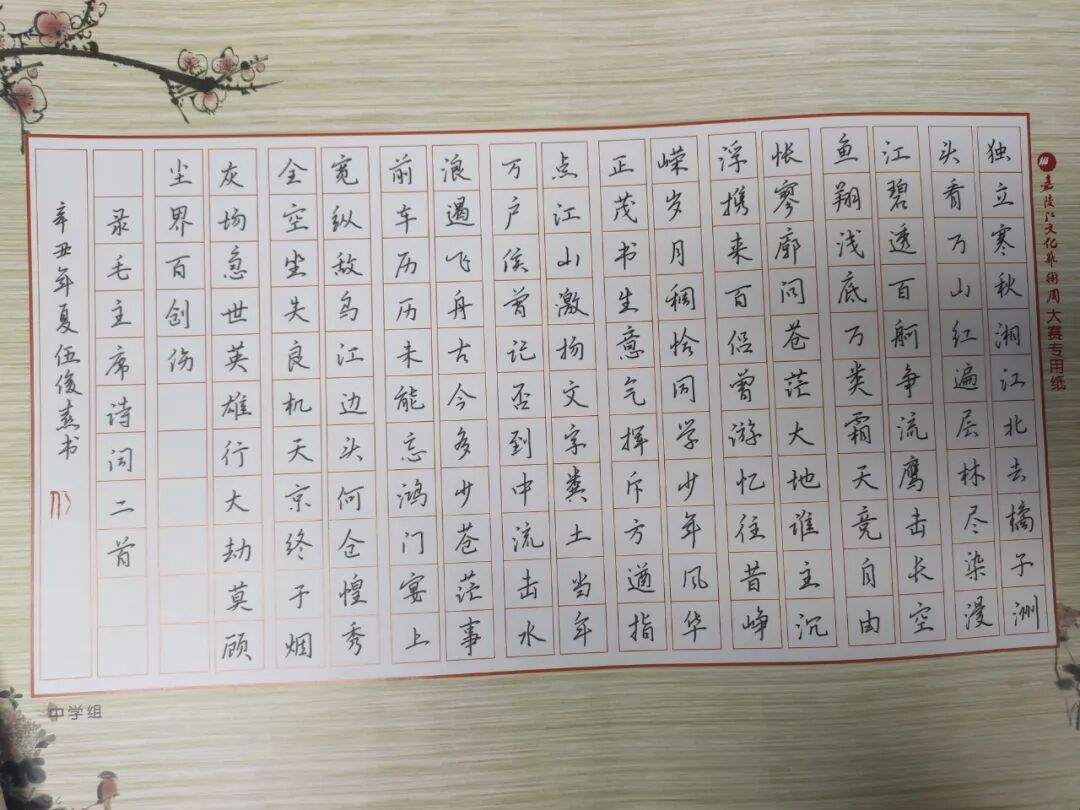 嘉陵江文化艺术周大赛专用纸
独立寒秋湘江北去橘子洲
头看万山红遍层林尽染漫
江碧透百舸争流鹰击长空
鱼翔浅底万类霜天竞自由
怅廖廓问苍茫大地谁主沉
浮携来百侣曾游忆往昔峥
嵘岁月稠恰同学少年风华
正茂书生意气挥斥方遒指
点江山激扬文字粪土当年
万户侯曾记否到中流击水
浪遏飞舟古今多少苍茫事
前车历历未能忘鸿门宴上
宽纵敌乌江边头何仓惶秀
全空坐失良机天京终于烟
灰场急世英雄行大劫莫顾
尘界百创伤
录毛主席诗词二首
辛丑年夏伍俊书
中学组